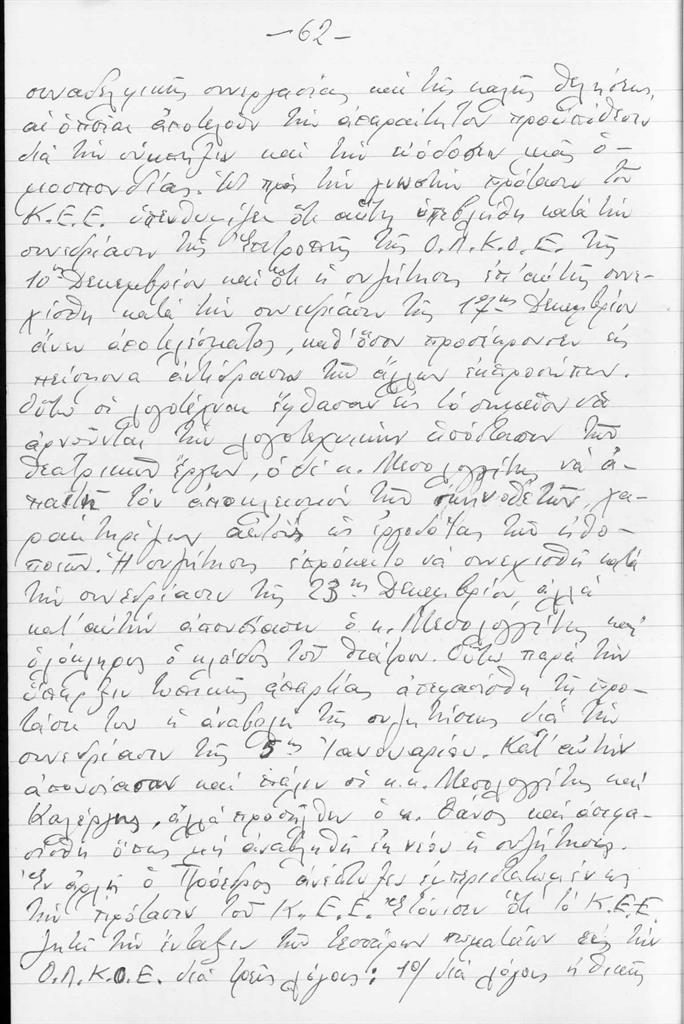 -62-
συναδελφικῆς συνεργασίας καὶ τῆς καλῆς θελήσεως,
αἱ ὁποῖαι ἀποτελοῦν τὴν ἀπαραίτητον προϋπόθεσιν
διὰ τὴν σύμπηξιν καὶ τὴν εὐόδωσιν μιᾶς ὁ-
μοσπονδίας. Ὡς πρὸς τὴν γνωστὴν πρότασιν τοῦ
Κ.Ε.Ε. ὑπενθυμίζει ὅτι αὕτη ὑπεβλήθη κατὰ τὴν
συνεδρίασιν τῆς Ἐπιτροπῆς τῆς Ο.Λ.Κ.Ο.Ε. τῆς
10ης Δεκεμβρίου καὶ ὅτι ἡ συζήτησις ἐπ' αὐτῆς συνε-
χίσθη κατὰ τὴν συνεδρίασιν τῆς 17ης Δεκεμβρίου
ἄνευ ἀποτελέσματος, καθ' ὅσον προσέκρουσεν εἰς
πείσμονα ἀντίδρασιν τῶν ἄλλων ἐκπροσώπων.
Οὕτω οἱ λογοτέχναι ἔφθασαν εἰς τὸ σημεῖον νὰ
ἀρνοῦνται τὴν λογοτεχνικὴν ὑπόστασιν τῶν
θεατρικῶν ἔργων, ὁ δὲ κ. Μεσολογγίτης νὰ ἀ-
παιτῇ τὸν ἀποκλεισμὸν τῶν σκηνοθετῶν, χα-
ρακτηρίζων αὐτοὺς ὡς ἐργοδότας τῶν ἠθο-
ποιῶν. Ἡ συζήτησις ἐπρόκειτο νὰ συνεχισθῇ κατὰ
τὴν συνεδρίασιν τῆς 23ης Δεκεμβρίου, ἀλλὰ
κατ' αὐτὴν ἀπουσίασεν ὁ κ. Μεσολογγίτης καὶ
ὁλόκληρος ὁ κλάδος τοῦ θεάτρου. Οὕτω παρὰ τὴν
ὕπαρξιν τυπικῆς ἀπαρτίας ἀπεφασίσθη τῇ προ-
τάσει του ἡ ἀναβολὴ τῆς συζητήσεως διὰ τὴν
συνεδρίασιν τῆς 5ης Ἰανουαρίου. Κατ' αὐτὴν
ἀπουσίασαν καὶ πάλιν οἱ κ.κ. Μεσολογγίτης καὶ
Καλέργης, ἀλλὰ προσῆλθεν ὁ κ. Θάνος καὶ ἀπεφα-
σίσθη ὅπως μὴ ἀναβληθῇ ἐκ νέου ἡ συζήτησις.
Ἐν ἀρχῇ ὁ Πρόεδρος ἀνέπτυξεν ἐμπεριστατωμένως
τὴν πρότασιν τοῦ Κ.Ε.Ε. Ἐτόνισεν ὅτι τὸ Κ.Ε.Ε.
ζητεῖ τὴν ἔνταξιν τῶν τεσσάρων σωματείων εἰς τὴν
Ο.Λ.Κ.Ο.Ε. διὰ τρεῖς λόγους: 1ο/ διὰ λόγους ἠθικῆς